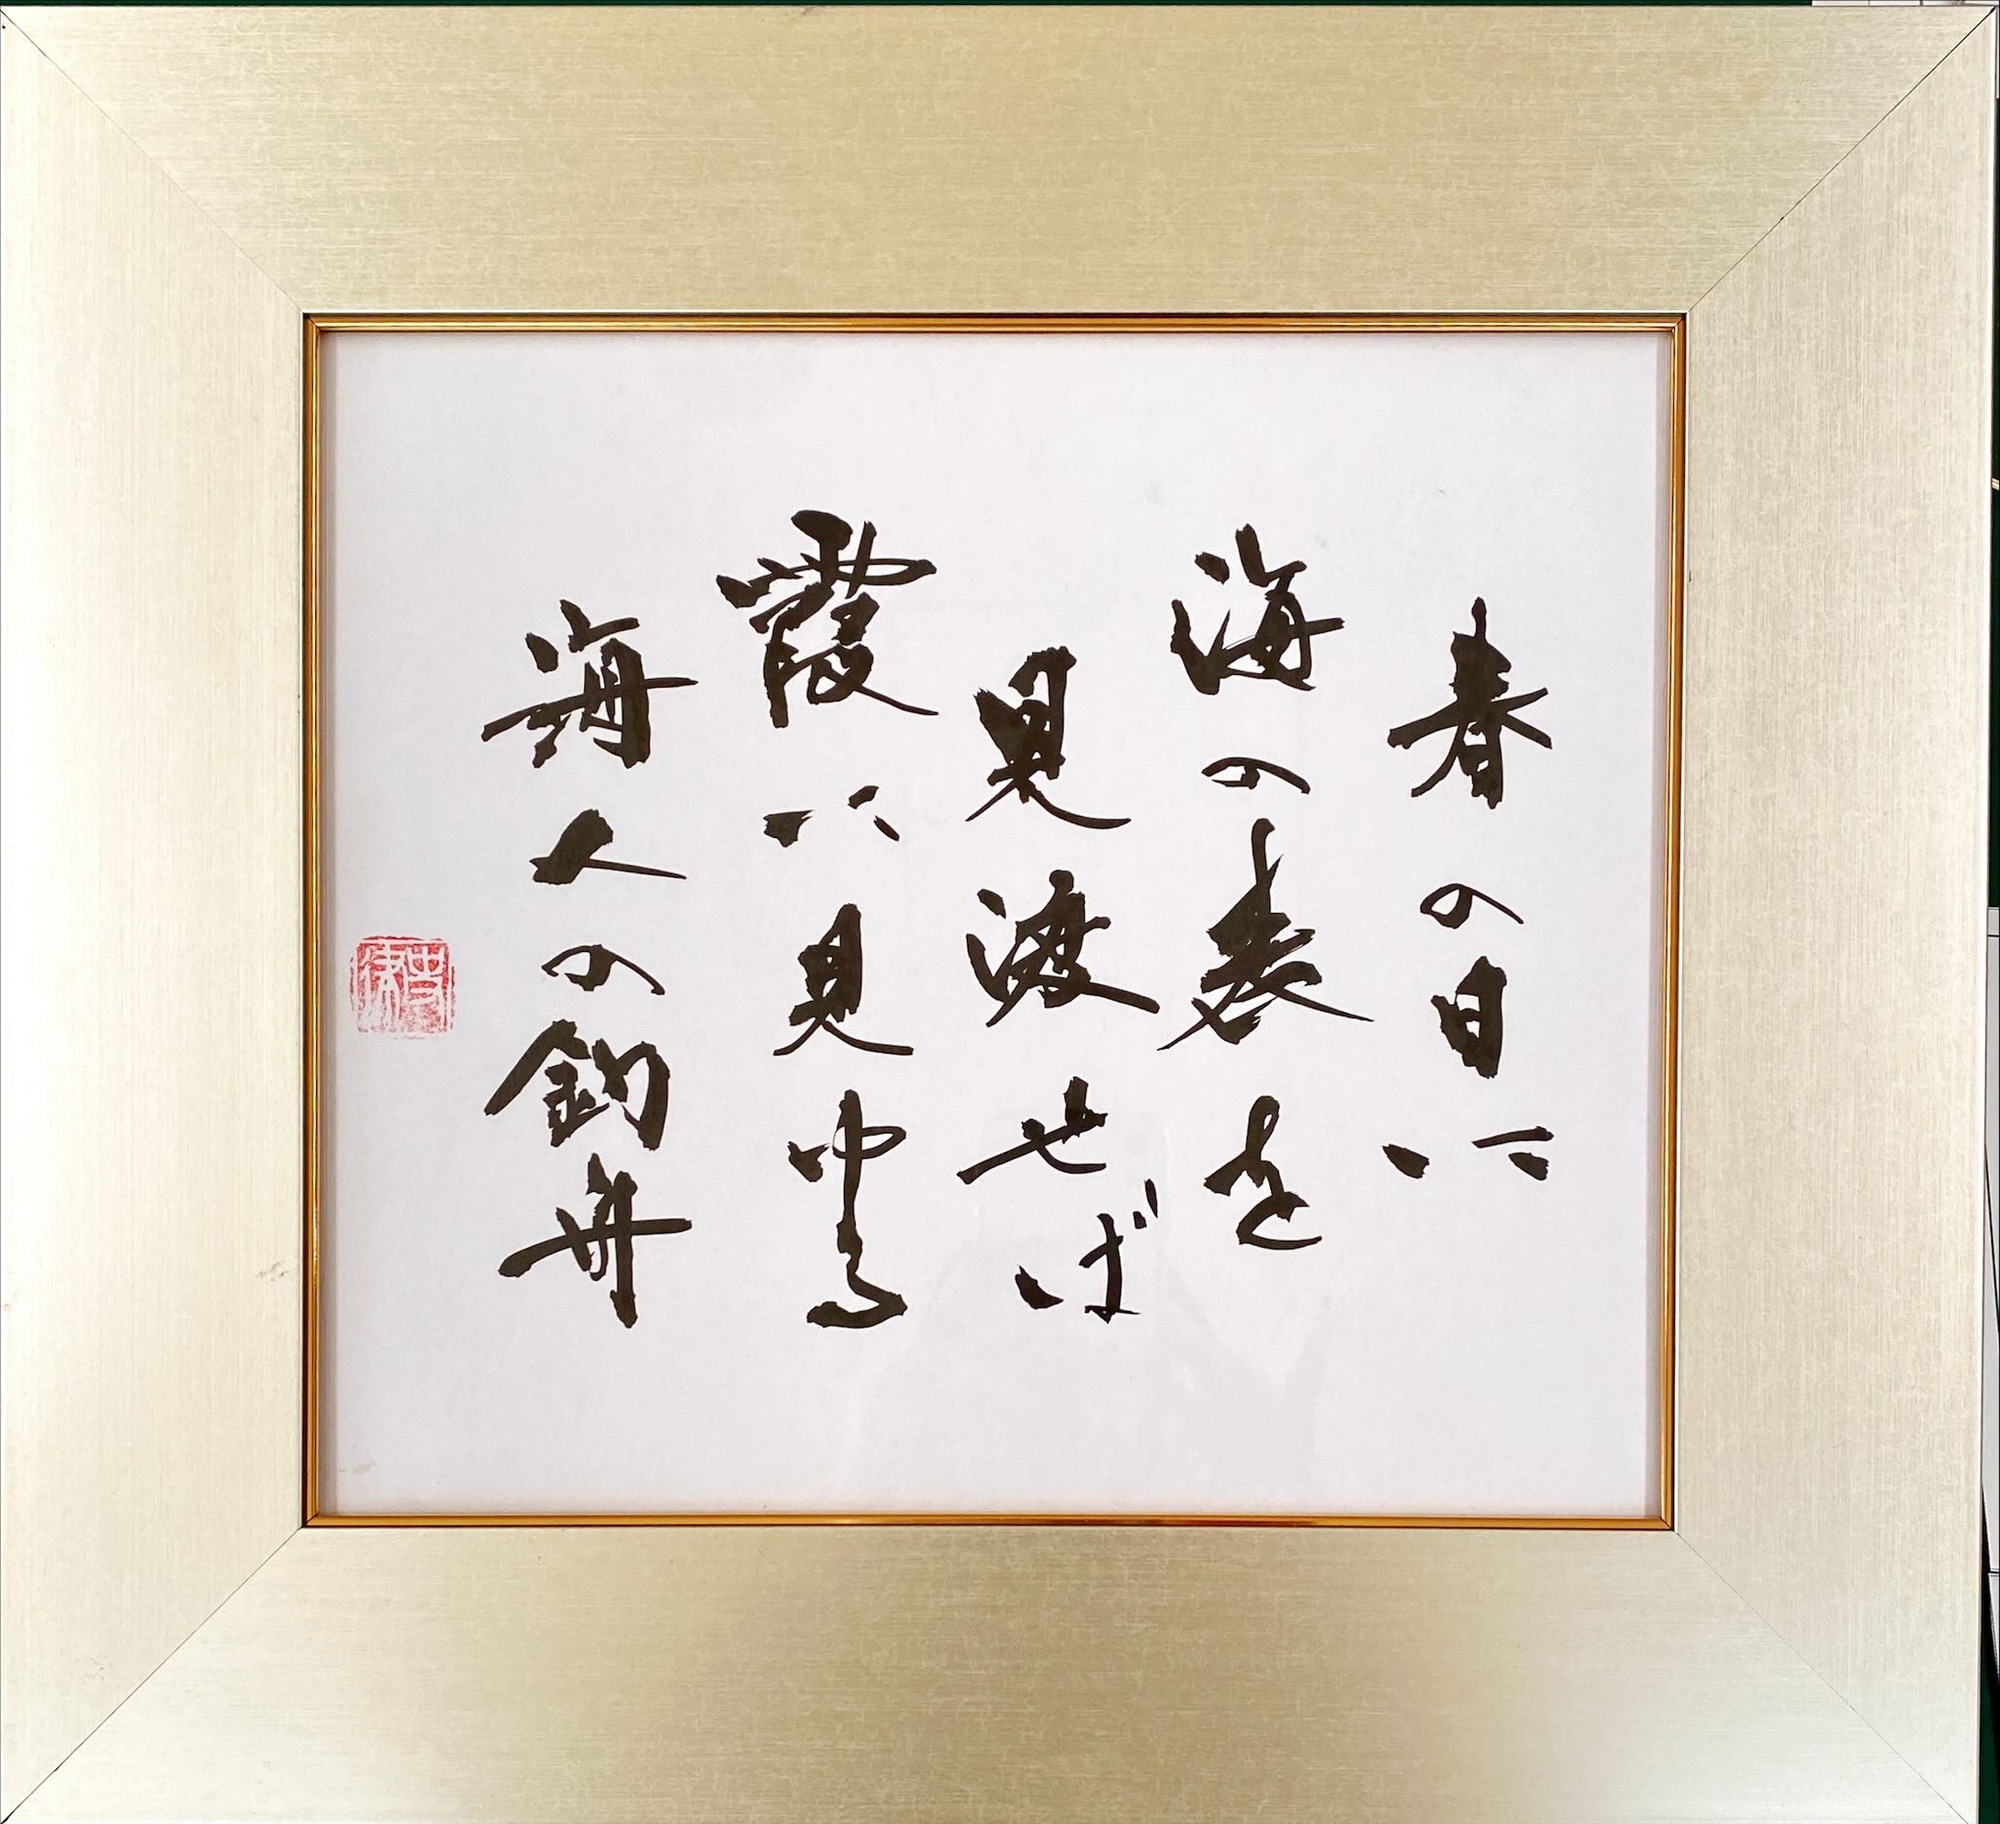 春の日に
海の表を
見渡せば
霞に見ゆる
海人の釣舟